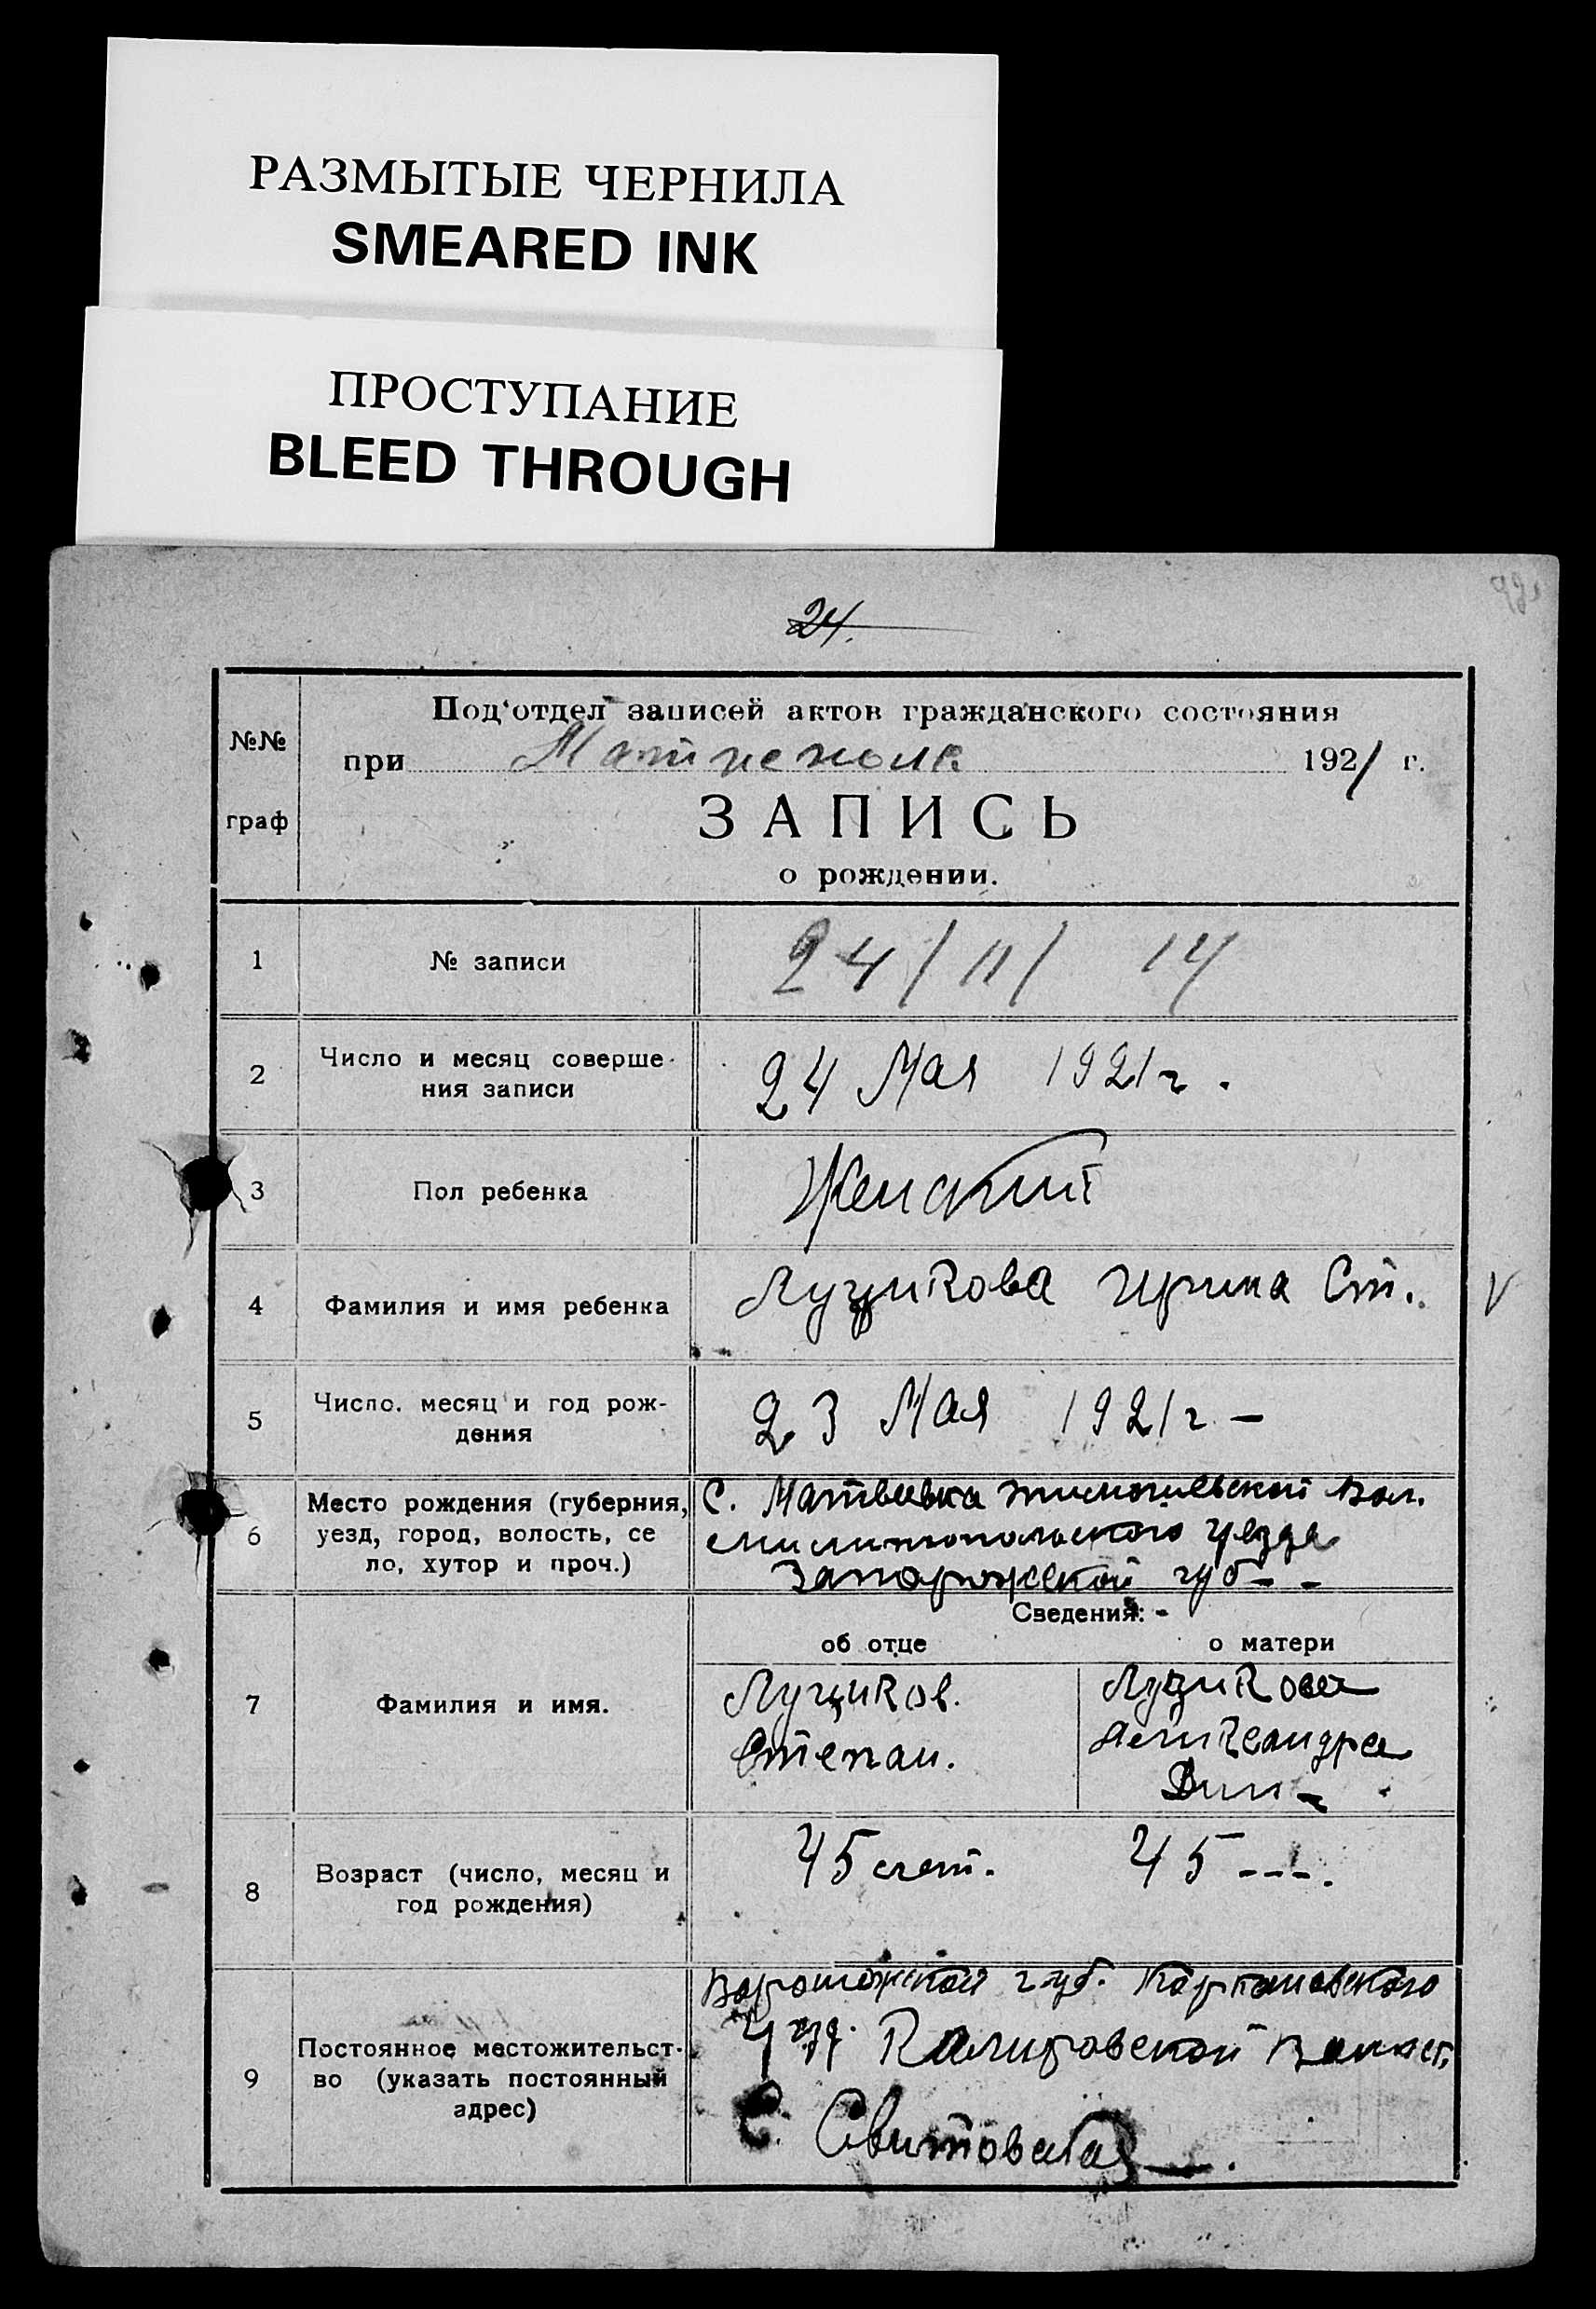 РАЗМЫТЫЕ ЧЕРНИЛА
SMEARED INK
ПРОСТУПАНИЕ
BLEED THROUGH
24.
Под'отдел записей актов гражданского состояния
№№
при 1921 г.
граф
ЗАПИСЬ
о рождении.
1 № записи 24/11/ 14
2 Число и месяц соверше- 24 Мая 1921 г.
ния записи
3 Пол ребенка Женский
4 Фамилия и имя ребенка Луциковa Ирина Ст. V
5 Число, месяц и год рож- 23 Мая 1921 г. —
дения
6 Место рождения (губерния, С. Матвеевка Вол.
уезд, город, волость, се уезда
ло, хутор и проч.) Запорожской губ - -
Сведения: -
об отце о матери
7 Фамилия и имя. Луциков. Луцикова
Степан. Александра
8 Возраст (число, месяц и 45 лет. 45 ---.
год рождения)
Воронежской губ.
9 Постоянное местожительст- уезд.
во (указать постоянный
адрес) С.